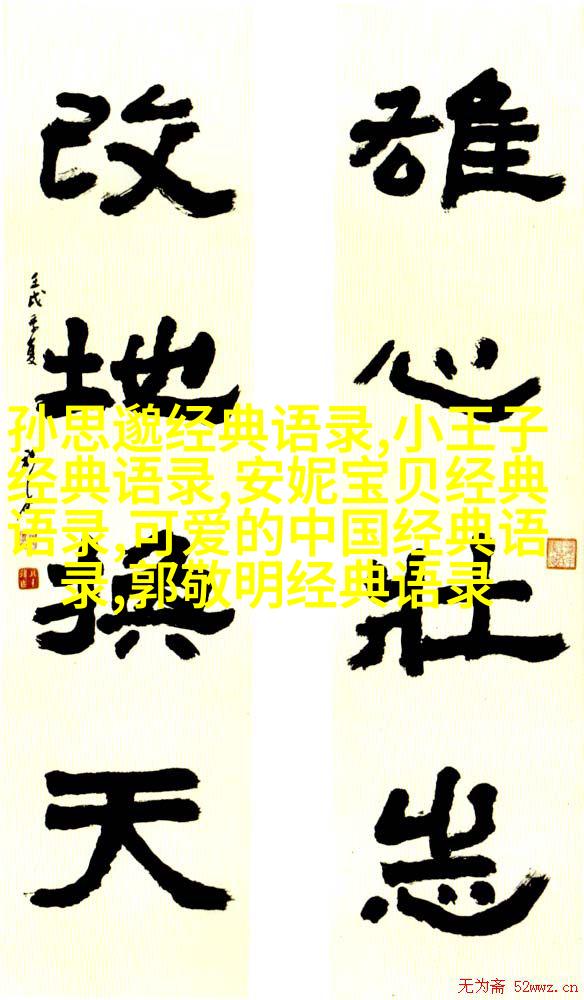 雄心壯志
改地換天
壬戌
孙思邈经典语录,小王子
经典语录,安妮宝贝经典
语录,可爱的中国经典语
录,郭敬明经典语录
无为斋 52wwz.cn